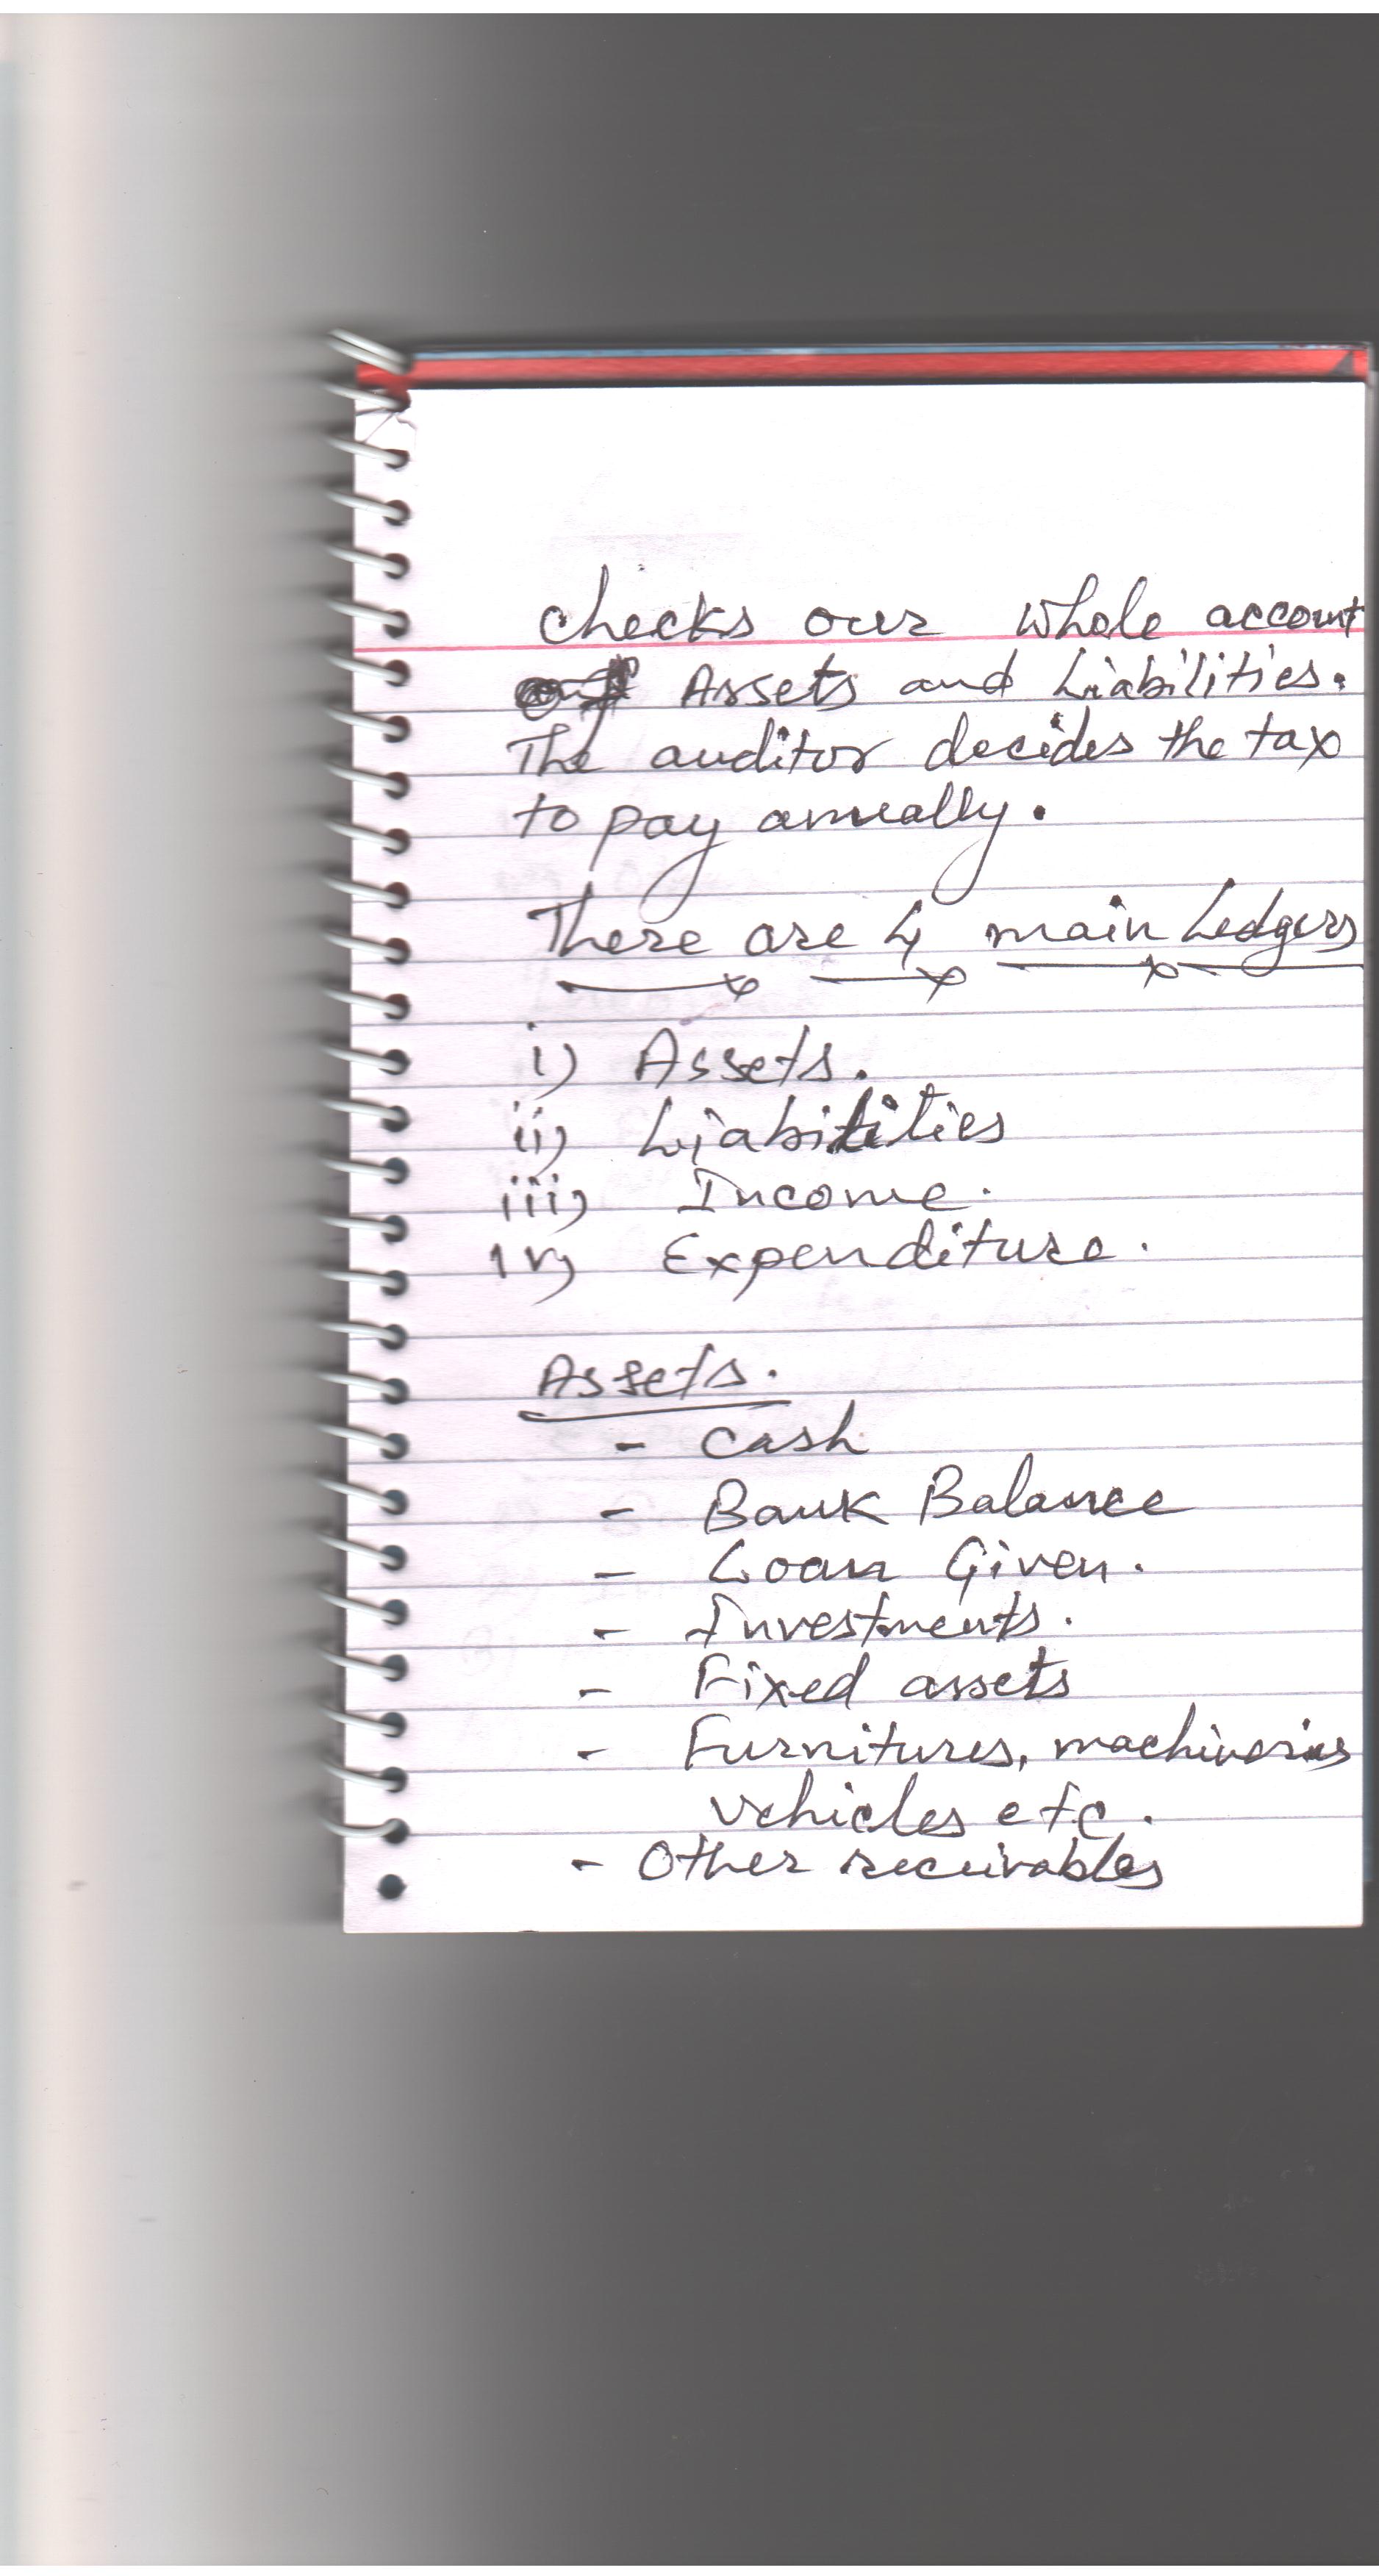 checks our whole account
Assets and Liabilities.
The auditor decides the tax
to pay annually.
There are 4 main Ledgers
i) Assets.
ii) Liabilities
iii) Income.
iv) Expenditure.
Assets.
- cash
- Bank Balance
- Loan Given.
- Investments.
- Fixed assets
- Furnitures, machineries
vehicles etc.
- Other receivables